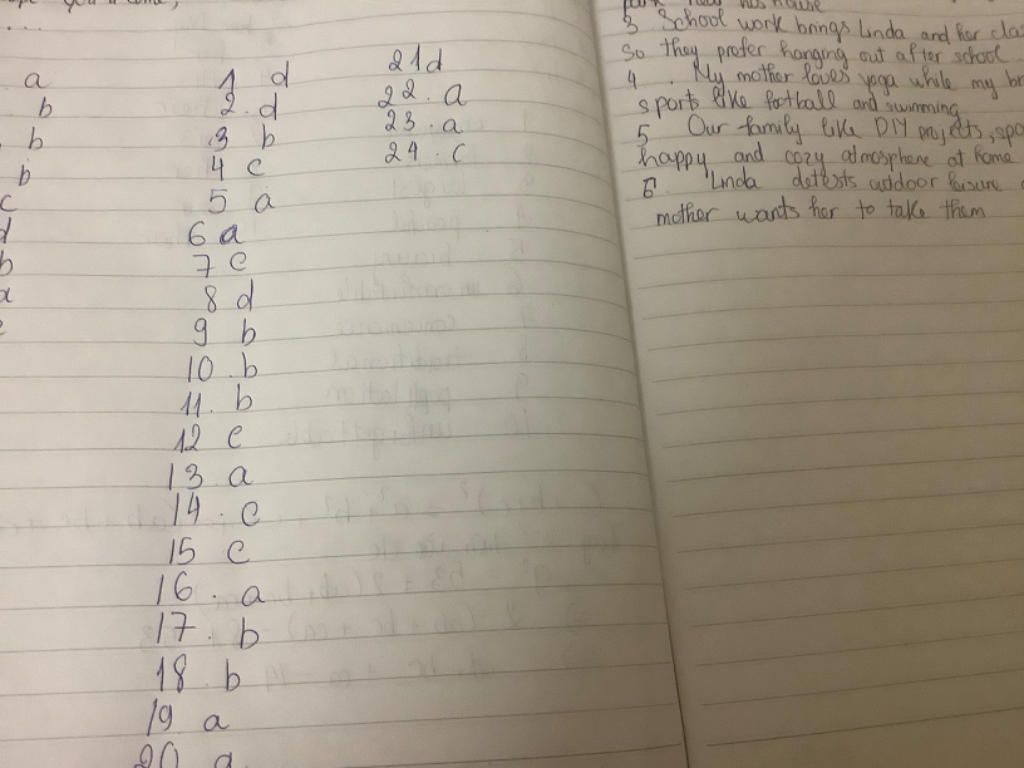 you'll come,
....
a
b
b
b
c
d
b
a
1 d
2. d
3 b
4 c
5 a
6 a
7 c
8 d
9 b
10. b
11. b
12 c
13 a
14. c
15 c
16. a
17. b
18 b
19 a
20 a
21d
22. a
23. a
24. c
his house
3 School work brings Linda and her
So they prefer hanging out after school
4. My mother loves yoga while my
sports like football and swimming
5 Our family like DIY projects,
happy and cozy atmosphere at home
6. Linda detests outdoor leisure
mother wants her to take them